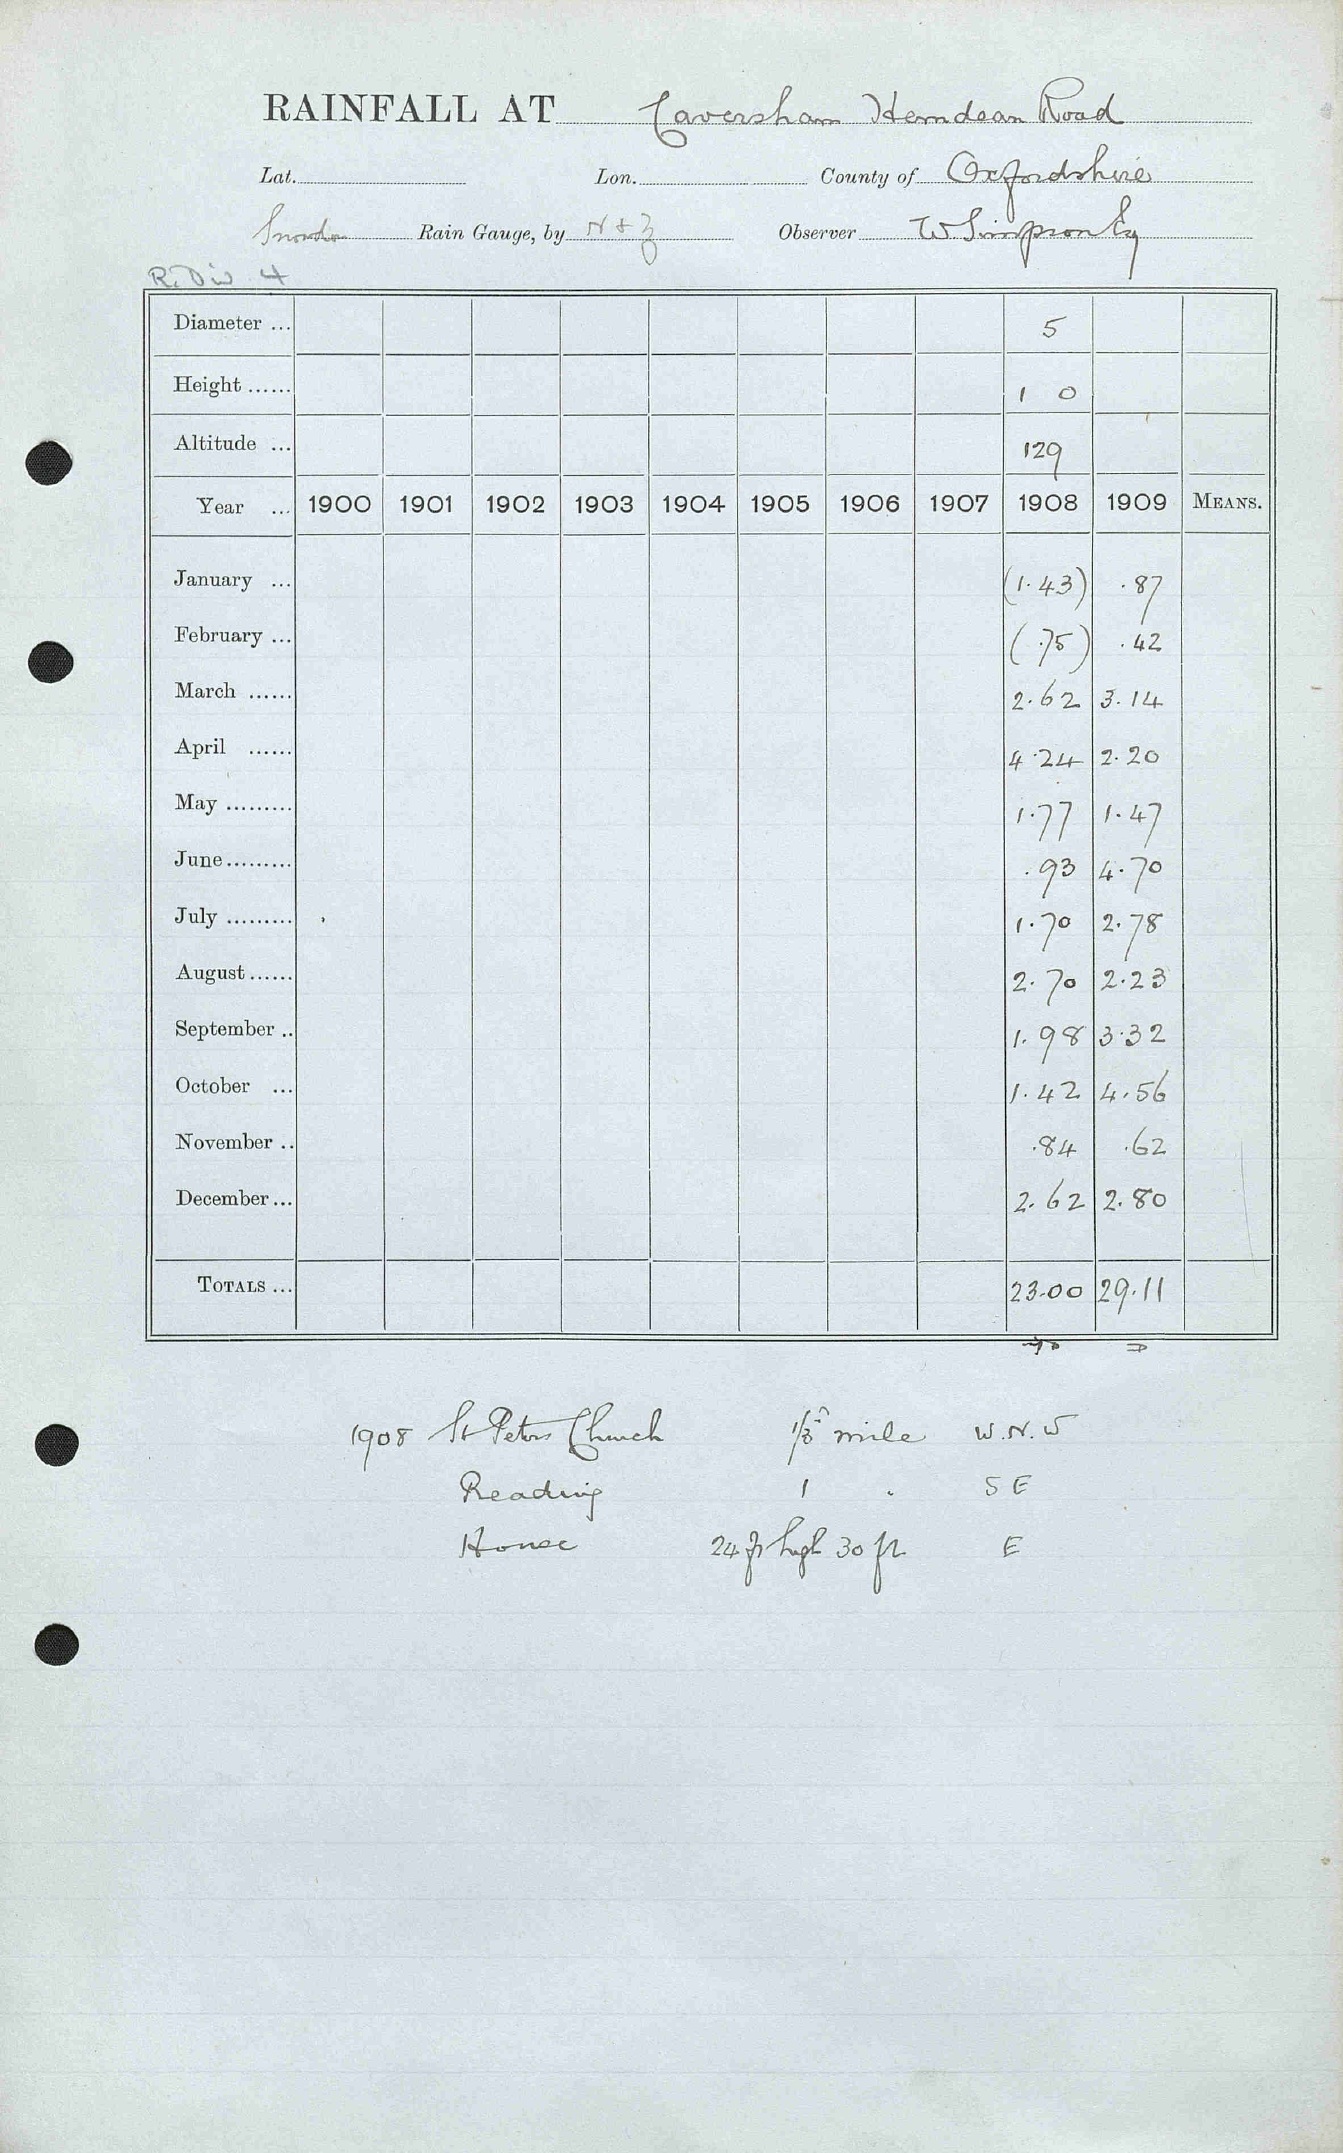 RAINFALL AT Caversham Hemdean Road
Lat. Lon. County of Oxfordshire
Snowdon Rain Gauge, by N & Z Observer W Simpson Esq
R. Div 4
Diameter ... 5
Height ...... 1 0
Altitude ... 129
Year ... 1900 1901 1902 1903 1904 1905 1906 1907 1908 1909 MEANS.
January ... (1.43) .87
February ... (.75) .42
March ...... 2.62 3.14
April ...... 4.24 2.20
May ......... 1.77 1.47
June ......... .93 4.70
July ......... 1.70 2.78
August ...... 2.70 2.23
September .. 1.98 3.32
October ... 1.42 4.56
November .. .84 .62
December ... 2.62 2.80
TOTALS ... 23.00 29.11
1908 St Peters Church 1/3rd mile W.N.W
Reading 1 " S E
House 24 ft high 30 ft E